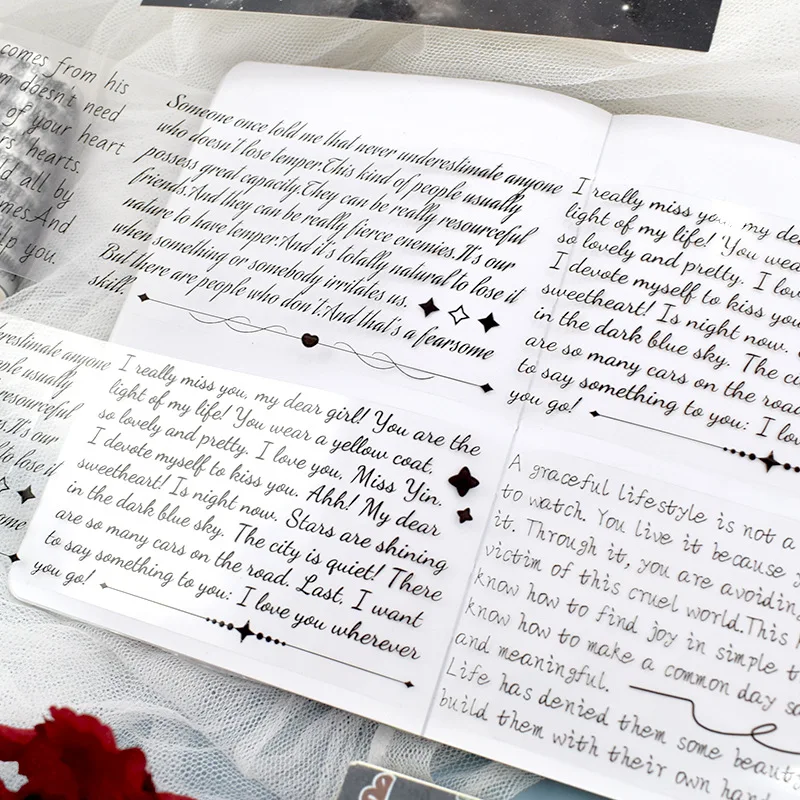 comes from his
doesn't need
of your heart
hearts.
all by
And
you.
Someone once told me that never underestimate anyone
who doesn't lose temper.This kind of people usually
possess great capacity.They can be really resourceful
friends.And they can be really fierce enemies.It's our
nature to have temper.And it's totally natural to lose it
when something or somebody irritates us.
But there are people who don't.And that's a fearsome
skill.
I really miss you, my
light of my life! You
so lovely and pretty. I
I devote myself to kiss you
sweetheart! Is night now.
in the dark blue sky. The
are so many cars on the road
to say something to you: I
you go!
anyone
people usually
resourceful
It's our
to lose it
I really miss you, my dear girl! You are the
light of my life! You wear a yellow coat,
so lovely and pretty. I love you, Miss Yin.
I devote myself to kiss you. Ahh! My dear
sweetheart! Is night now. Stars are shining
in the dark blue sky. The city is quiet! There
are so many cars on the road. Last, I want
to say something to you: I love you wherever
you go!
A graceful lifestyle is not a
to watch. You live it because
it. Through it, you are avoiding
victim of this cruel world.This
know how to find joy in simple
know how to make a common day
and meaningful.
Life has denied them some
build them with their own